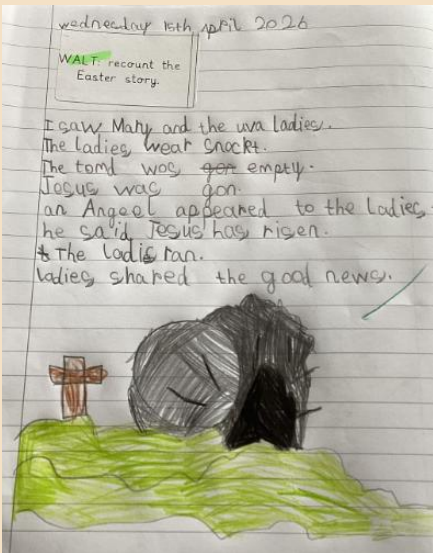 wednesday 15th April 2026
WALT: recount the
Easter story.
I saw Mary and the uva ladies.
The ladies wear Snockt.
The tomd wos gon empty.
Jesus was gon.
an Angeel appeared to the ladies
he said Jesus has risen.
t The ladis ran.
ladies shared the good news.